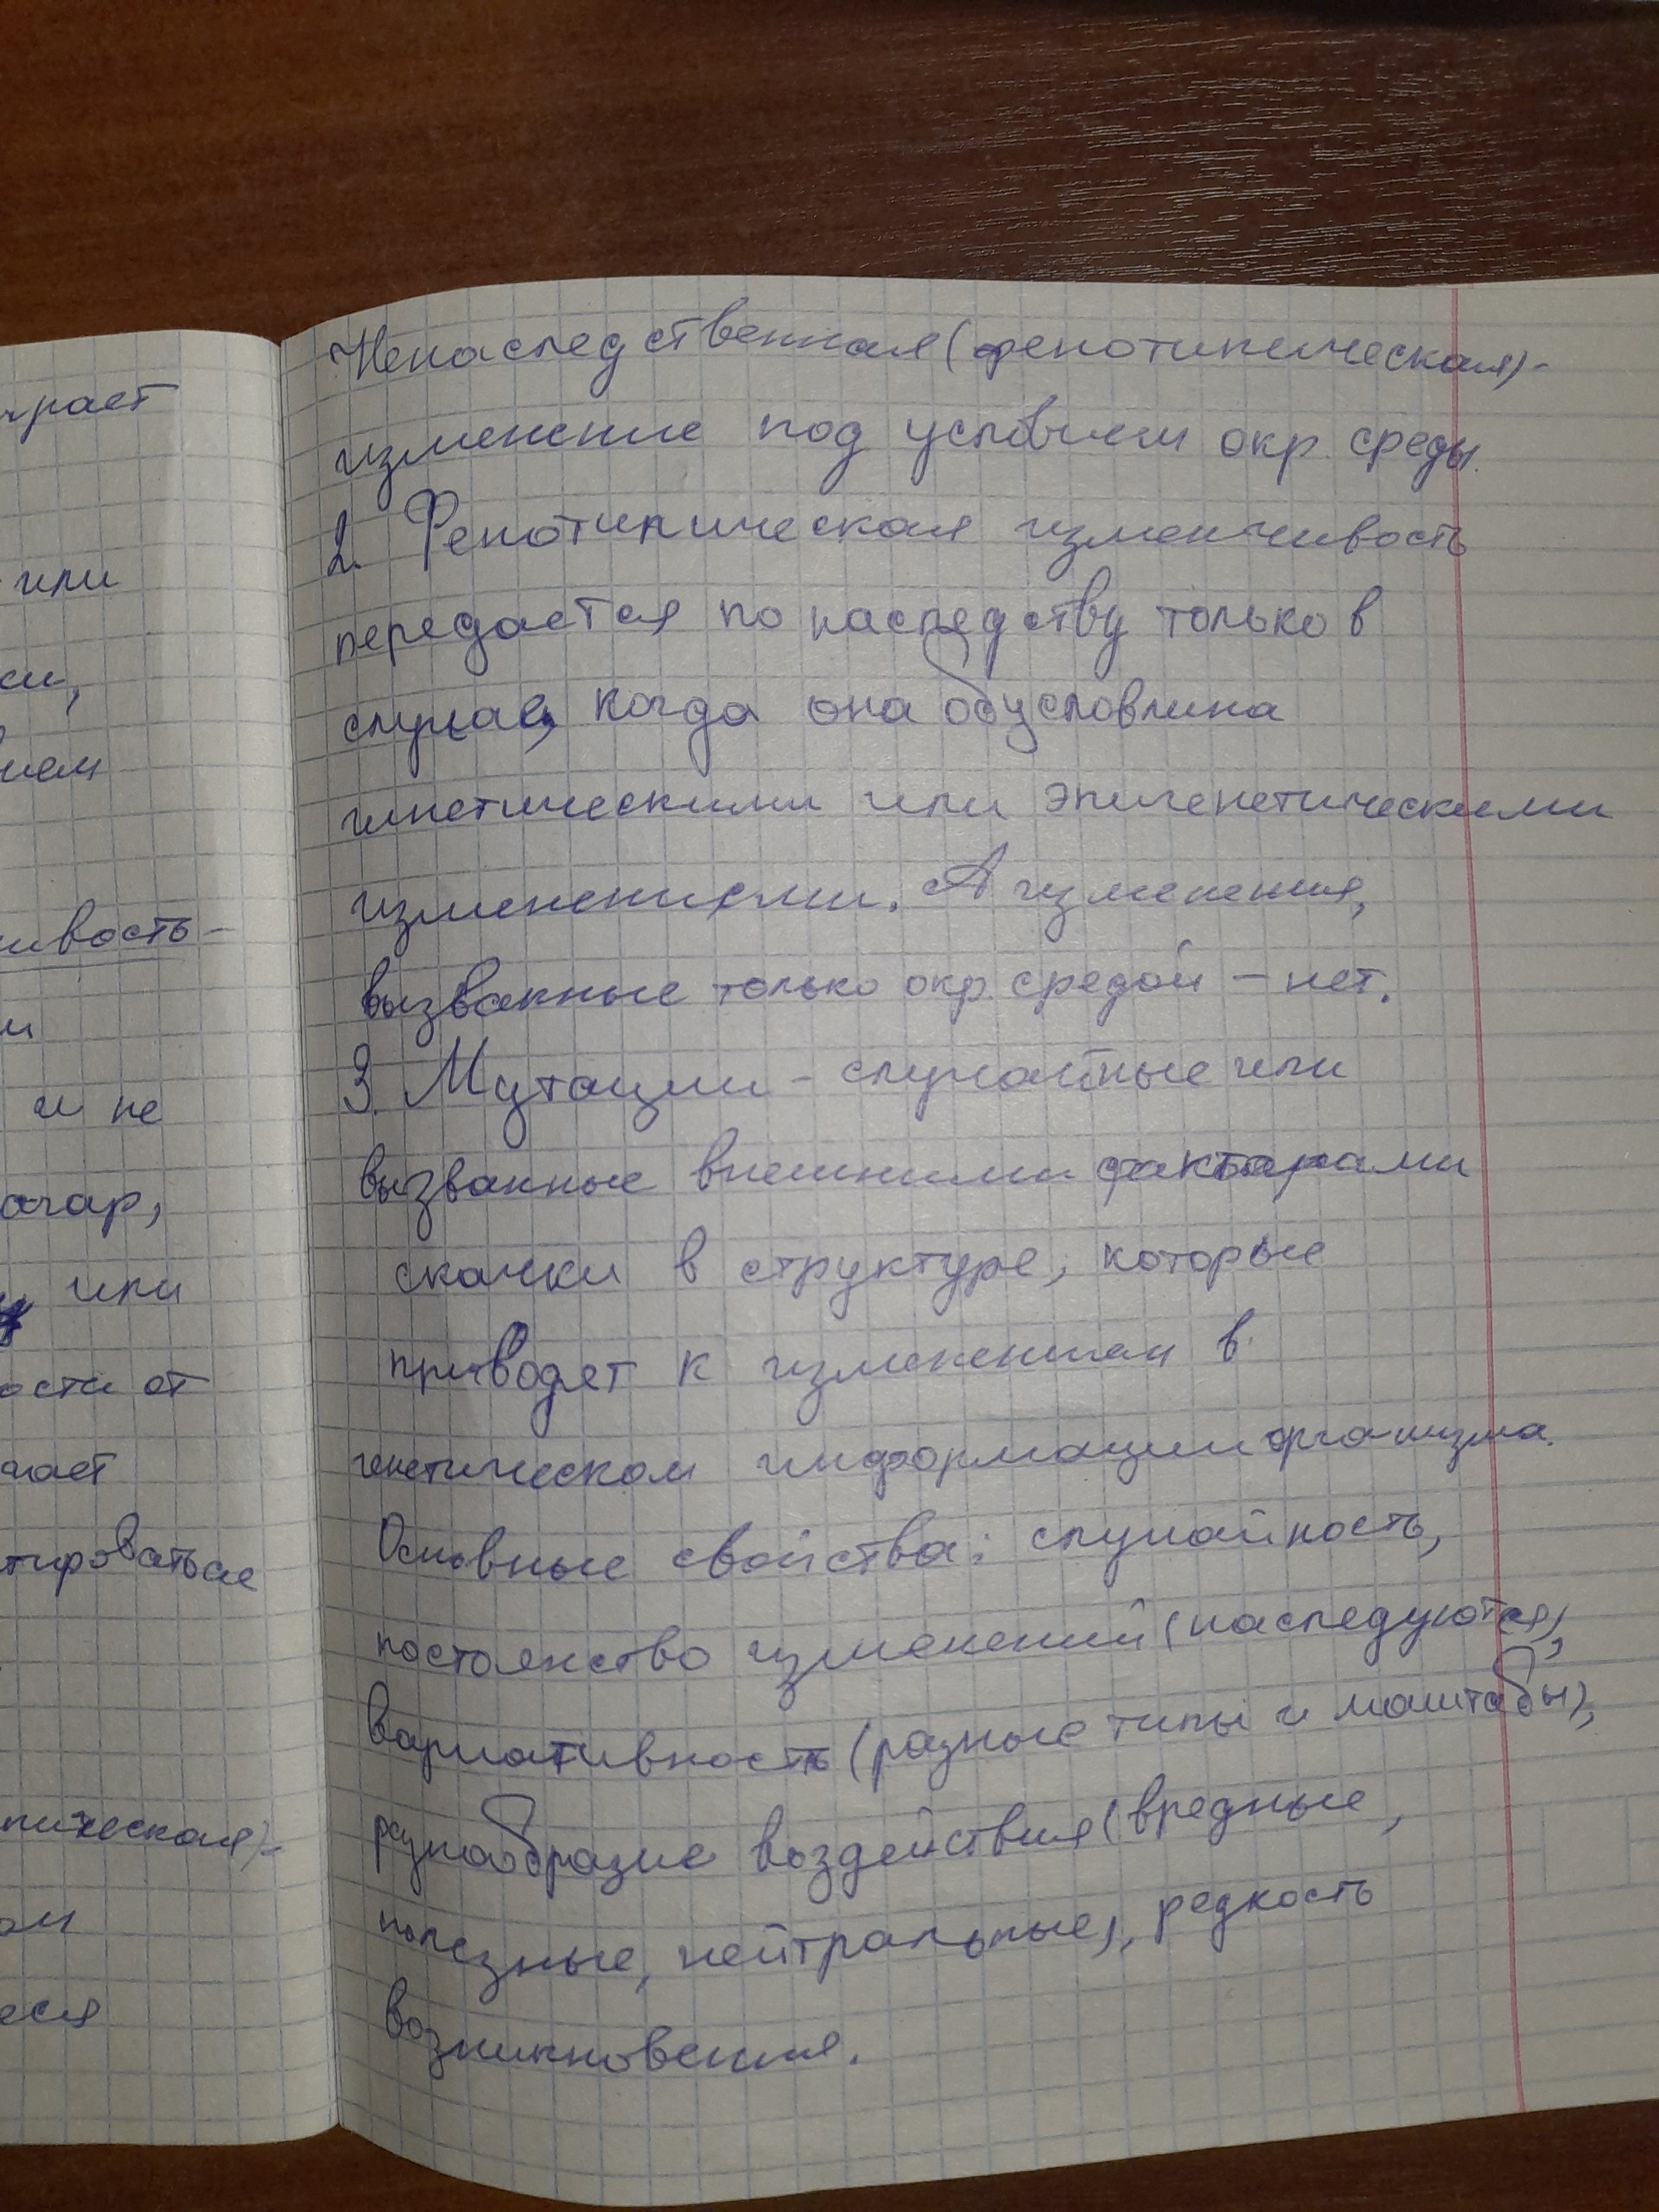 чрает
или
ки,
ием
ивость -
и
и не
агар,
или
ости от
чает
тироваться
пическая)-
ом
еся
Ненаследственная (фенотипическая)-
изменение под условием окр. среды.
2. Фенотипическая изменчивость
передается по наследству только в
случае, когда она обусловлина
гинетическими или эпигенетическими
изменениями. А изменения,
вызванные только окр. средой - нет.
3. Мутации - случайные или
вызванные внешними факторами
скачки в структуре, которые
приводят к изменениям в
генетическом информации организма.
Основные свойства: случайность,
постоянство изменений (наследуются),
Вариативность (разные типы и маштабы),
разнообразие воздействия (вредные,
полезные, нейтральные), редкость
возникновения.